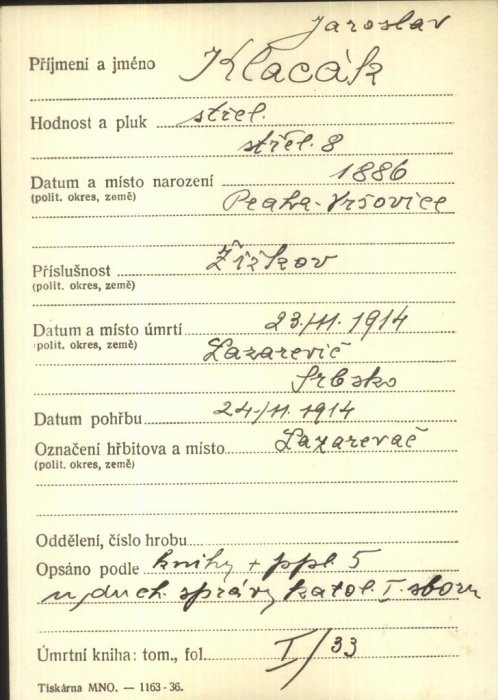 Jaroslav
Příjmení a jméno Klacák
Hodnost a pluk střel.
střel. 8
Datum a místo narození 1886
(polit. okres, země) Praha-Vršovice
Příslušnost Žižkov
(polit. okres, země)
Datum a místo úmrtí 23/11. 1914
(polit. okres, země) Lazarevič
Srbsko
Datum pohřbu 24/11. 1914
Označení hřbitova a místo Lazarevač
(polit. okres, země)
Oddělení, číslo hrobu
Opsáno podle knihy + ppl. 5
u duch. správy katol. I. sboru
Úmrtní kniha: tom., fol. I/33
Tiskárna MNO. — 1163-36.